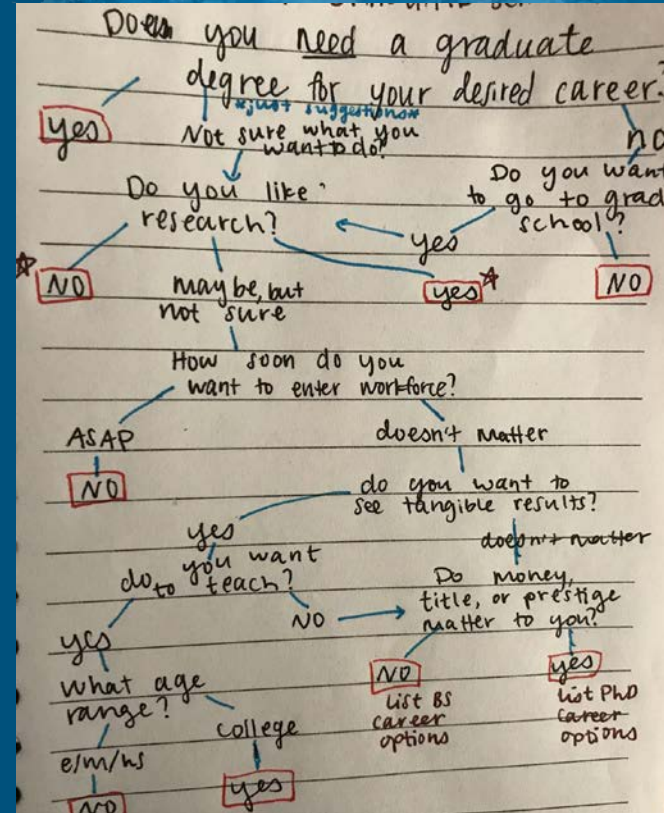 Does you need a graduate
degree for your desired career?
*just suggestions*
yes
Not sure what you
want to do?
no
Do you want
to go to grad
school?
Do you like
research?
yes
NO
NO
maybe, but
not sure
yes
How soon do you
want to enter workforce?
ASAP
doesn't matter
NO
do you want to
see tangible results?
yes
doesn't matter
do you want
to teach?
Do money,
title, or prestige
matter to you?
NO
yes
what age
range?
NO
yes
list BS
career
options
list PhD
career
options
college
e/m/hs
yes
NO